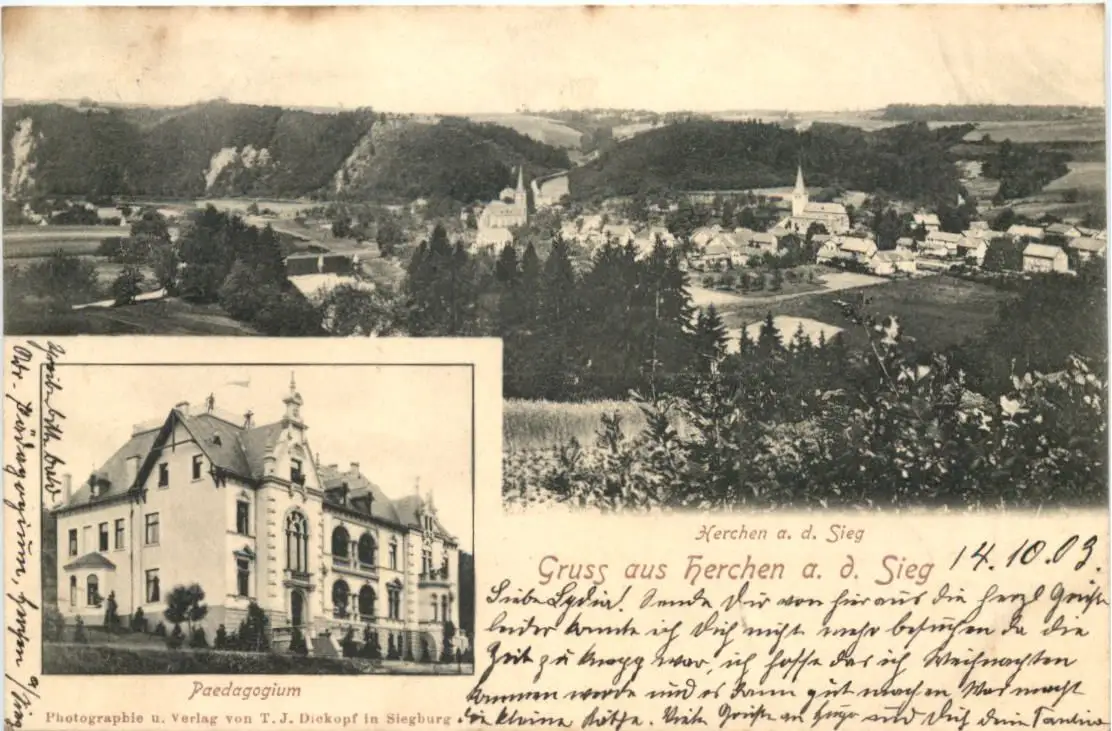 Herchen a. d. Sieg
Gruss aus Herchen a. d. Sieg
14.10.03.
Liebe Lydia! Sende Dir von hier aus die herzl Grüße
leider konnte ich Dich nicht mehr besuchen da die
Zeit zu knapp war, ich hoffe das ich Weihnachten
kommen werde und es dann gut machen. Was macht
die kleine Käthe. Viele Grüße an Hugo und Dich dein
Paedagogium
Photographie u. Verlag von T. J. Dickopf in Siegburg.
Schreibe bitte bald
Adr. Pädagogium, Herchen
a/Sieg